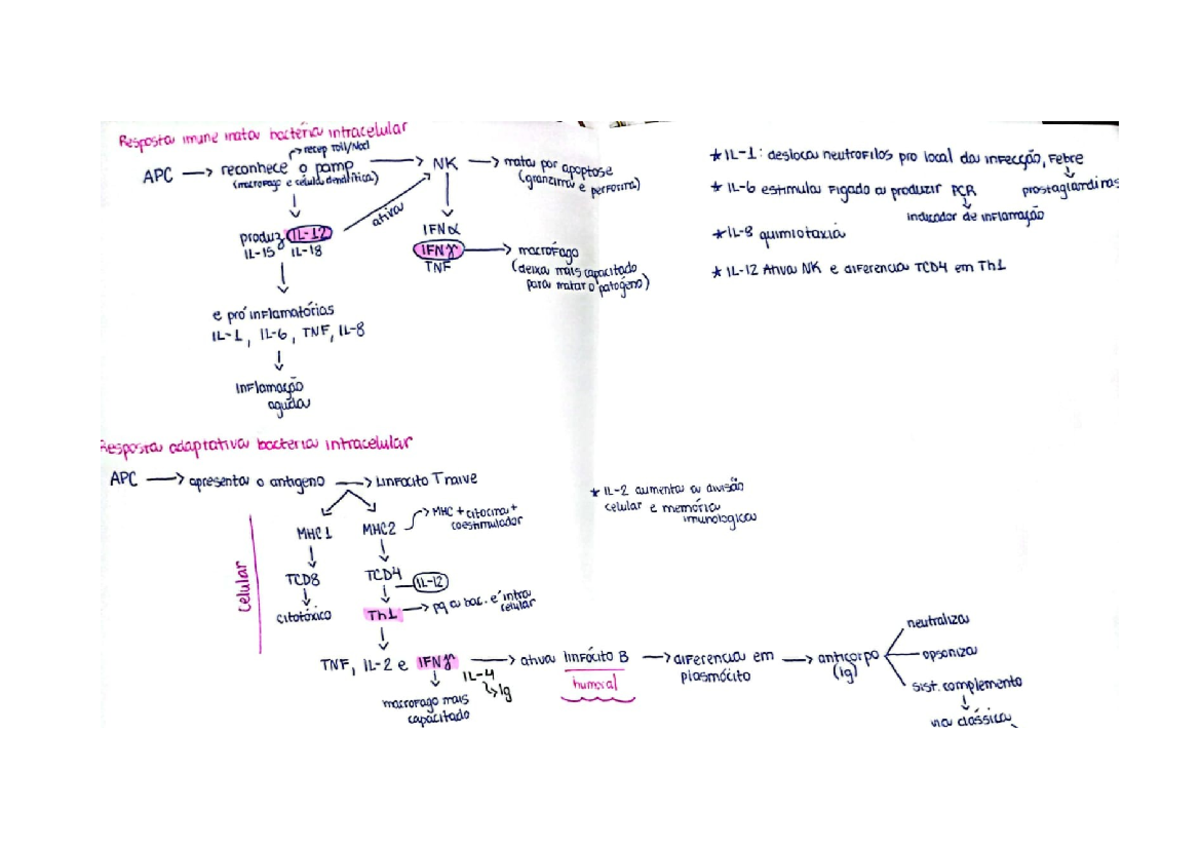 Resposta imune inata bactéria intracelular
→ recep Toll/Nod
APC → reconhece o pamp → NK → mata por apoptose
(macrofago e célula dendítica)
(granzima e perforina)
ativa
produz IL-12
IL-15 IL-18
IFNα
IFNγ → macrófago
TNF
(deixa mais capacitado
para matar o patógeno)
e pró inflamatórias
IL-1, IL-6, TNF, IL-8
Inflamação
aguda
★ IL-1: desloca neutrofilos pro local da infecção, Febre
prostaglandinas
★ IL-6 estimula Figado a produzir PCR
indicador de inflamação
★ IL-8 quimiotaxia
★ IL-12 Ativa NK e diferencia TCD4 em Th1
Resposta adaptativa bacteria intracelular
APC → apresenta o antigeno → Linfocito T naive
MHC1 MHC2 → MHC + citocina +
coestimulador
★ IL-2 aumenta a divisão
celular e memória
imunologica
celular
TCD8 TCD4 IL-12
citotóxico Th1 → pq a bac. é intra
celular
TNF, IL-2 e IFNγ → ativa linfócito B → diferencia em
plasmócito → anticorpo
(ig)
IL-4
↳ Ig
humoral
macrofago mais
capacitado
neutraliza
opsoniza
sist. complemento
via clássica